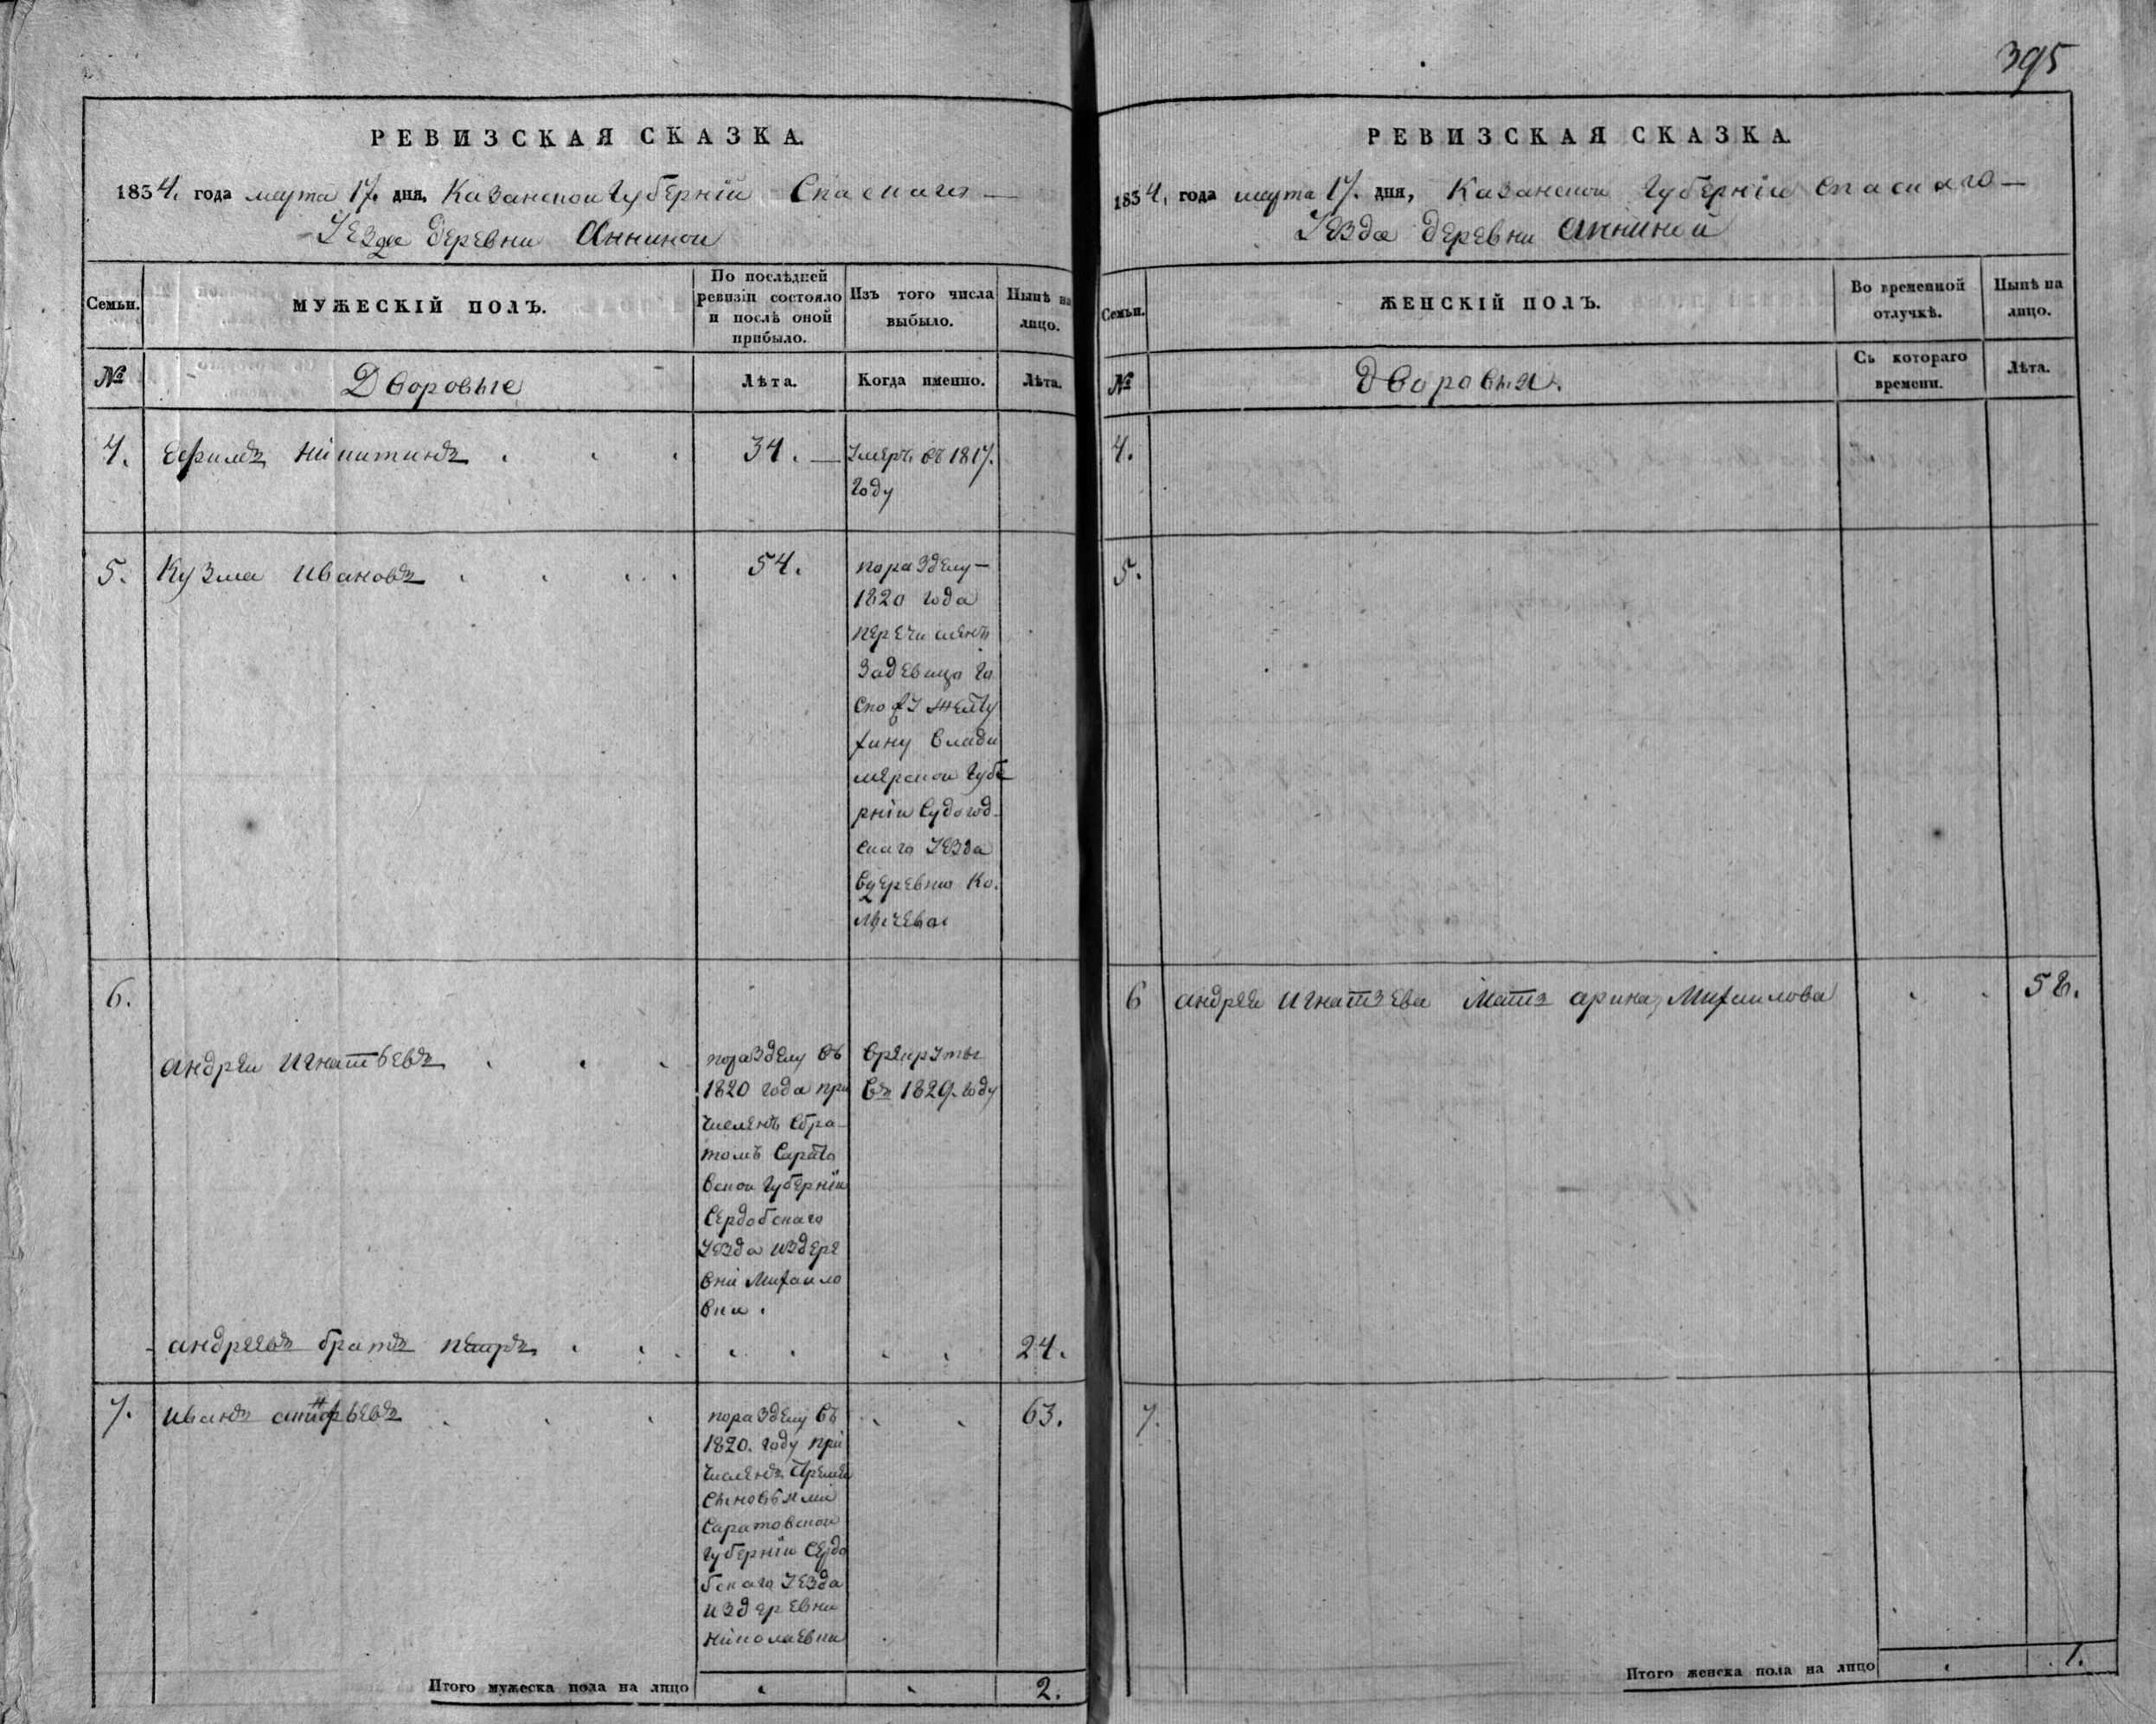 395
РЕВИЗСКАЯ СКАЗКА.
1834. года марта 17. дня, Казанскои Губернїи Спаскаго —
Уезда деревни Аннинои
Семьи. МУЖЕСКІЙ ПОЛЪ. По послѣдней ревизіи состояло и послѣ оной прибыло. Изъ того числа выбыло. Нынѣ на лицо.
№ Дворовые Лѣта. Когда именно. Лѣта.
4. Ефимъ Никитинъ 34. — Умеръ въ 1817.
году
5. Кузма Ивановъ 54. поразделу —
1820 года
перечисленъ
го
спо
Влади
мерскои Губе
рнїи Судогод-
скаго Уезда
вдеревню Ко.
6.
андреи Игнатьевъ поразделу въ
1820 года при
численъ сбра-
томъ Сарато
вскои Губернїи
Сердобскаго
Уезда издере
внї Михаило
вки.
врекруты
въ 1829. году
андреевъ братъ петръ 24.
7. иванъ поразделу въ 63.
1820. году при
численъ
сыновьями
Саратовскои
Губернїи Сердо
бскаго Уезда
издеревни
николаевки
Итого мужеска пола на лицо 2.
РЕВИЗСКАЯ СКАЗКА.
1834. года марта 17. дня, Казанскои Губернїи Спаскаго —
Уезда деревни Анниной
Семьи. ЖЕНСКІЙ ПОЛЪ. Во временной отлучкѣ. Нынѣ на лицо.
№ Дворовыя. Съ котораго времени. Лѣта.
4.
5.
6 андрея игнатьева мать арина Михаилова 58.
7.
Итого женска пола на лицо 1.